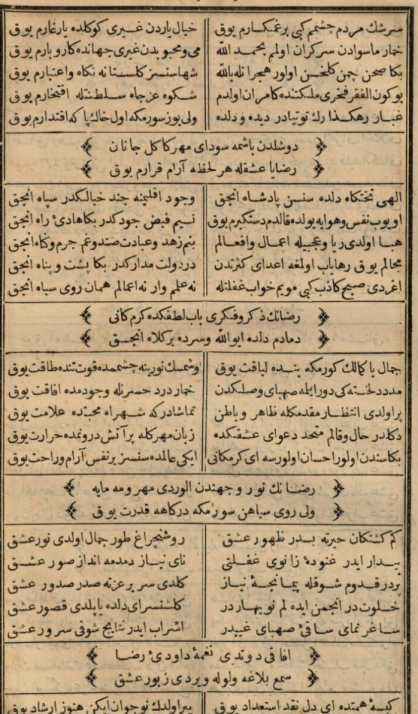 سرشك مردم چشمم كبی بر غمكسارم یوق
خیال یاردن غیری كوكلده یار غارم یوق
خمار ماسوادن سركران اولمم بحمد الله
می و محبوبدن غیری جهانده كار و بارم یوق
بكا صحن چمن كلخن اولور هجرا نله بالله
شها سنسز كلستانه نكاه و اعتبارم یوق
بو كون الفقر فخری ملكتنده كامران اولدم
شكوه عز جاه سلطنتله افتخارم یوق
غبار رهكذارك توتیادر دیده و دلده
ولی یوز سورمكه اول خاكپا كه اقتدارم یوق
دوشلدن باشمه سودای مهر كاكل جانان
رضایا عشقله هر لحظه آرام قرارم یوق
الهی تختكاه دلده سنسن پادشاه آنجق
وجود اقلیمنه چند خیالكدر سپاه آنجق
اویوب نفس و هوایه یولده قالدم دستكیرم یوق
نسیم فیض جودكدر بكا هادئ راه آنجق
هبا اولدی ریا و عجبیله اعمال و افعالم
بنم زهد و عبادت صندوغم جرم و كناه آنجق
مجالم یوق رها یاب اولمغه اعدای كثرتدن
در دولت مداركدر بكا پشت و پناه آنجق
اغردی صبح كاذب كبی مویم خواب غفلتله
نه علم وار نه اعمالم همان روی سیاه آنجق
رضانك ذكر و فكری باب لطفكده كرم كانی
دمادم دلده ایوالله و سرده بر كلاه آنجق
جمال با كمالك كورمكه بنده لیاقت یوق
و شمسك نورینه چشممده قوت تنده طاقت یوق
مدد دلخسته كی دور ایله صهبای وصلكدن
خمار درد حسرتله وجودمده افاقت یوق
بر اولدی انتظار مقدمكله ظاهر و باطن
تماشادر كه شهراه محبتده علامت یوق
دكلدر حال و قالم متحد دعوای عشقكده
زبان مهركله پر آتش درونمده حرارت یوق
بكا سندن اولور احسان اولورسه ای كرم كانی
ایكی عالمده سنسز بر نفس آرام و راحت یوق
رضانك نور وجهندن الوردی مهر و مه مایه
ولی روی سیاهن سورمكه دركاهه قدرت یوق
كم كشتكان حیرته بدر ظهور عشق
روشن چراغ طور جمال اولدی نور عشق
بیدار ایدر غنوده زانوی غفلتی
نای نیاز دمدمه انداز صور عشق
بر در قدوم شوقله پیمانچهٔ نیاز
كلدی سریر عزته صدر صدور عشق
خلوت در انجمن ایده لم نو بهاردر
كلشنسرای دلده یاپلدی قصور عشق
ساغر نمای ساقئ صهبای غیبدر
اشراب ایدر نتایج شوقی سرور عشق
افاقی دوتدی نغمهٔ داودئ رضا
سمع بلاغه ولوله ویردی زبور عشق
كیسهٔ همتده ای دل نقد استعداد یوق
پیر اولدك نوجوان ایكن هنوز ارشاد یوق